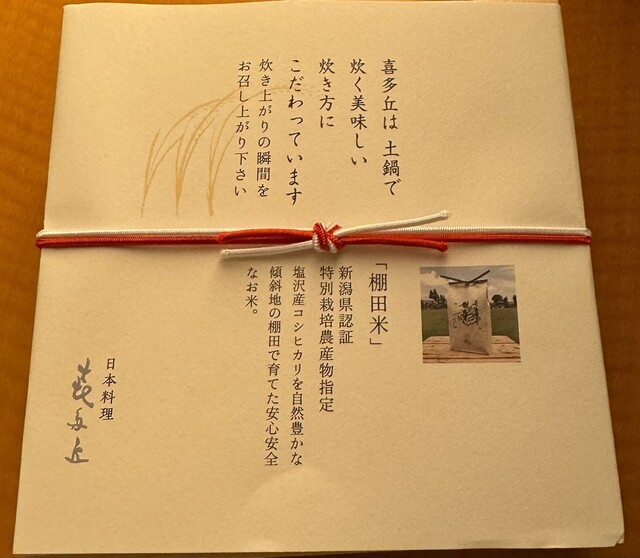 喜多丘は 土鍋で
炊く美味しい
炊き方に
こだわっています
炊き上がりの瞬間を
お召し上がり下さい
「棚田米」
新潟県認証
特別栽培農産物指定
塩沢産コシヒカリを自然豊かな
傾斜地の棚田で育てた安心安全
なお米。
日本料理
喜多丘